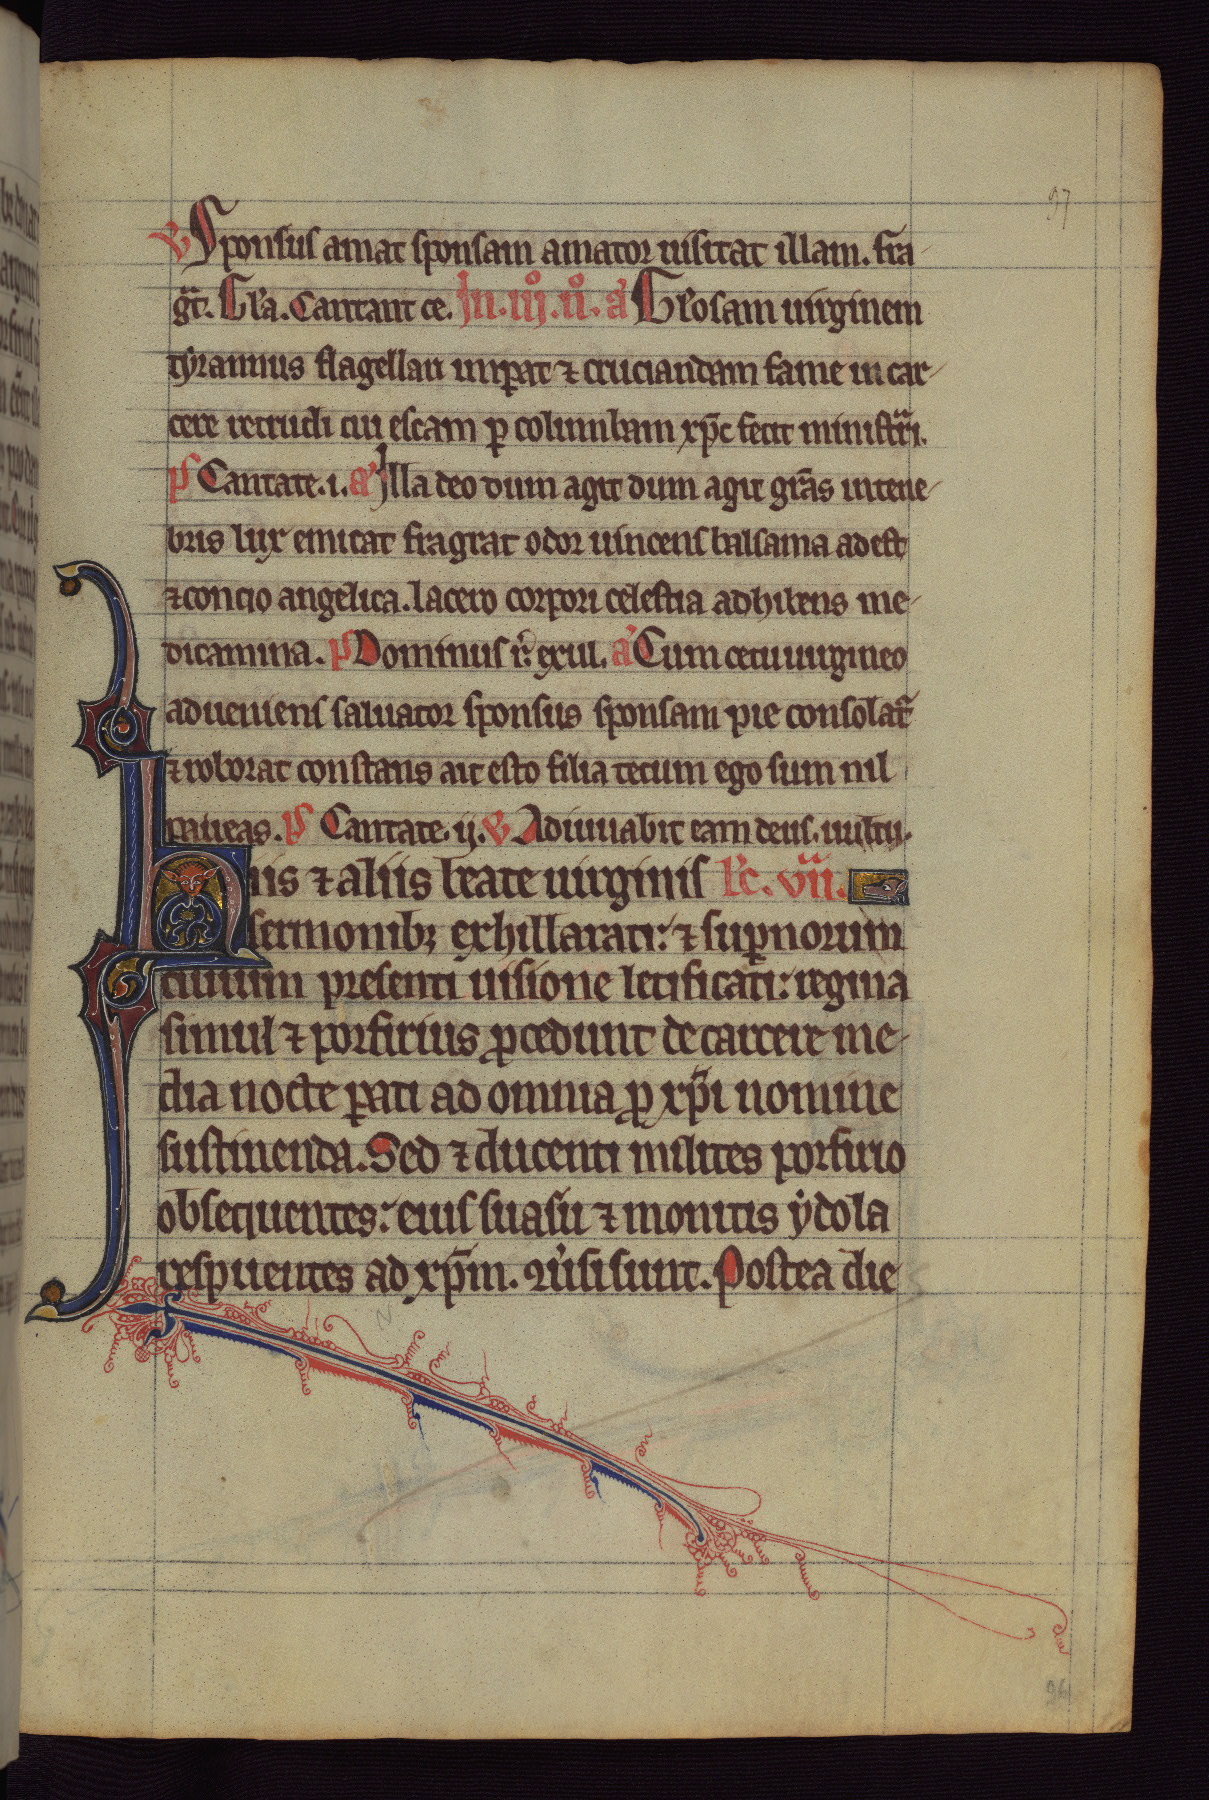 97
V Sponsus amat sponsam amator uisitat illam. fra
gͣt. Gl'a. Cantant ce. In. iijͦ. nͦ. a' Gl'osam uirginem
tẏrannus flagellari imꝑat ⁊ cruciandam fame in car-
cere retrudi cui escam ꝑ columbam xp̄c fecit ministͣri.
p̄s Cantate. i. a' Illa deo dum agit dum agit grās in tene-
bris lux emicat fragrat odor uincens balsama adest
⁊ concio angelica. lacero corpori celestia adhibens me-
dicamina. ps Dominus r̄. exiii. a' Cum cetu uirgineo
adueniens saluator sponsus sponsam pie consolat̄
⁊ roborat constans ait esto filia tecum ego sum nil
paueas. ps Cantate. ij. V Adiuuabit eam deus. uultu.
Hiis ⁊ aliis beate uirginis l'c. vii.
sermonibꝫ exhillarati: ⁊ suꝑnorum
ciuium presenti uisione letificati: regina
simul ⁊ porfirius ꝓcedunt de carcere me-
dia nocte ꝑati ad omnia ꝓ xp̄i nomine
sustinenda. Sed ⁊ ducenti milites porfirio
obsequentes: eius suasu ⁊ monitis ẏdola
respuentes ad xp̄m. ꝯu'si sunt. Postea die
96